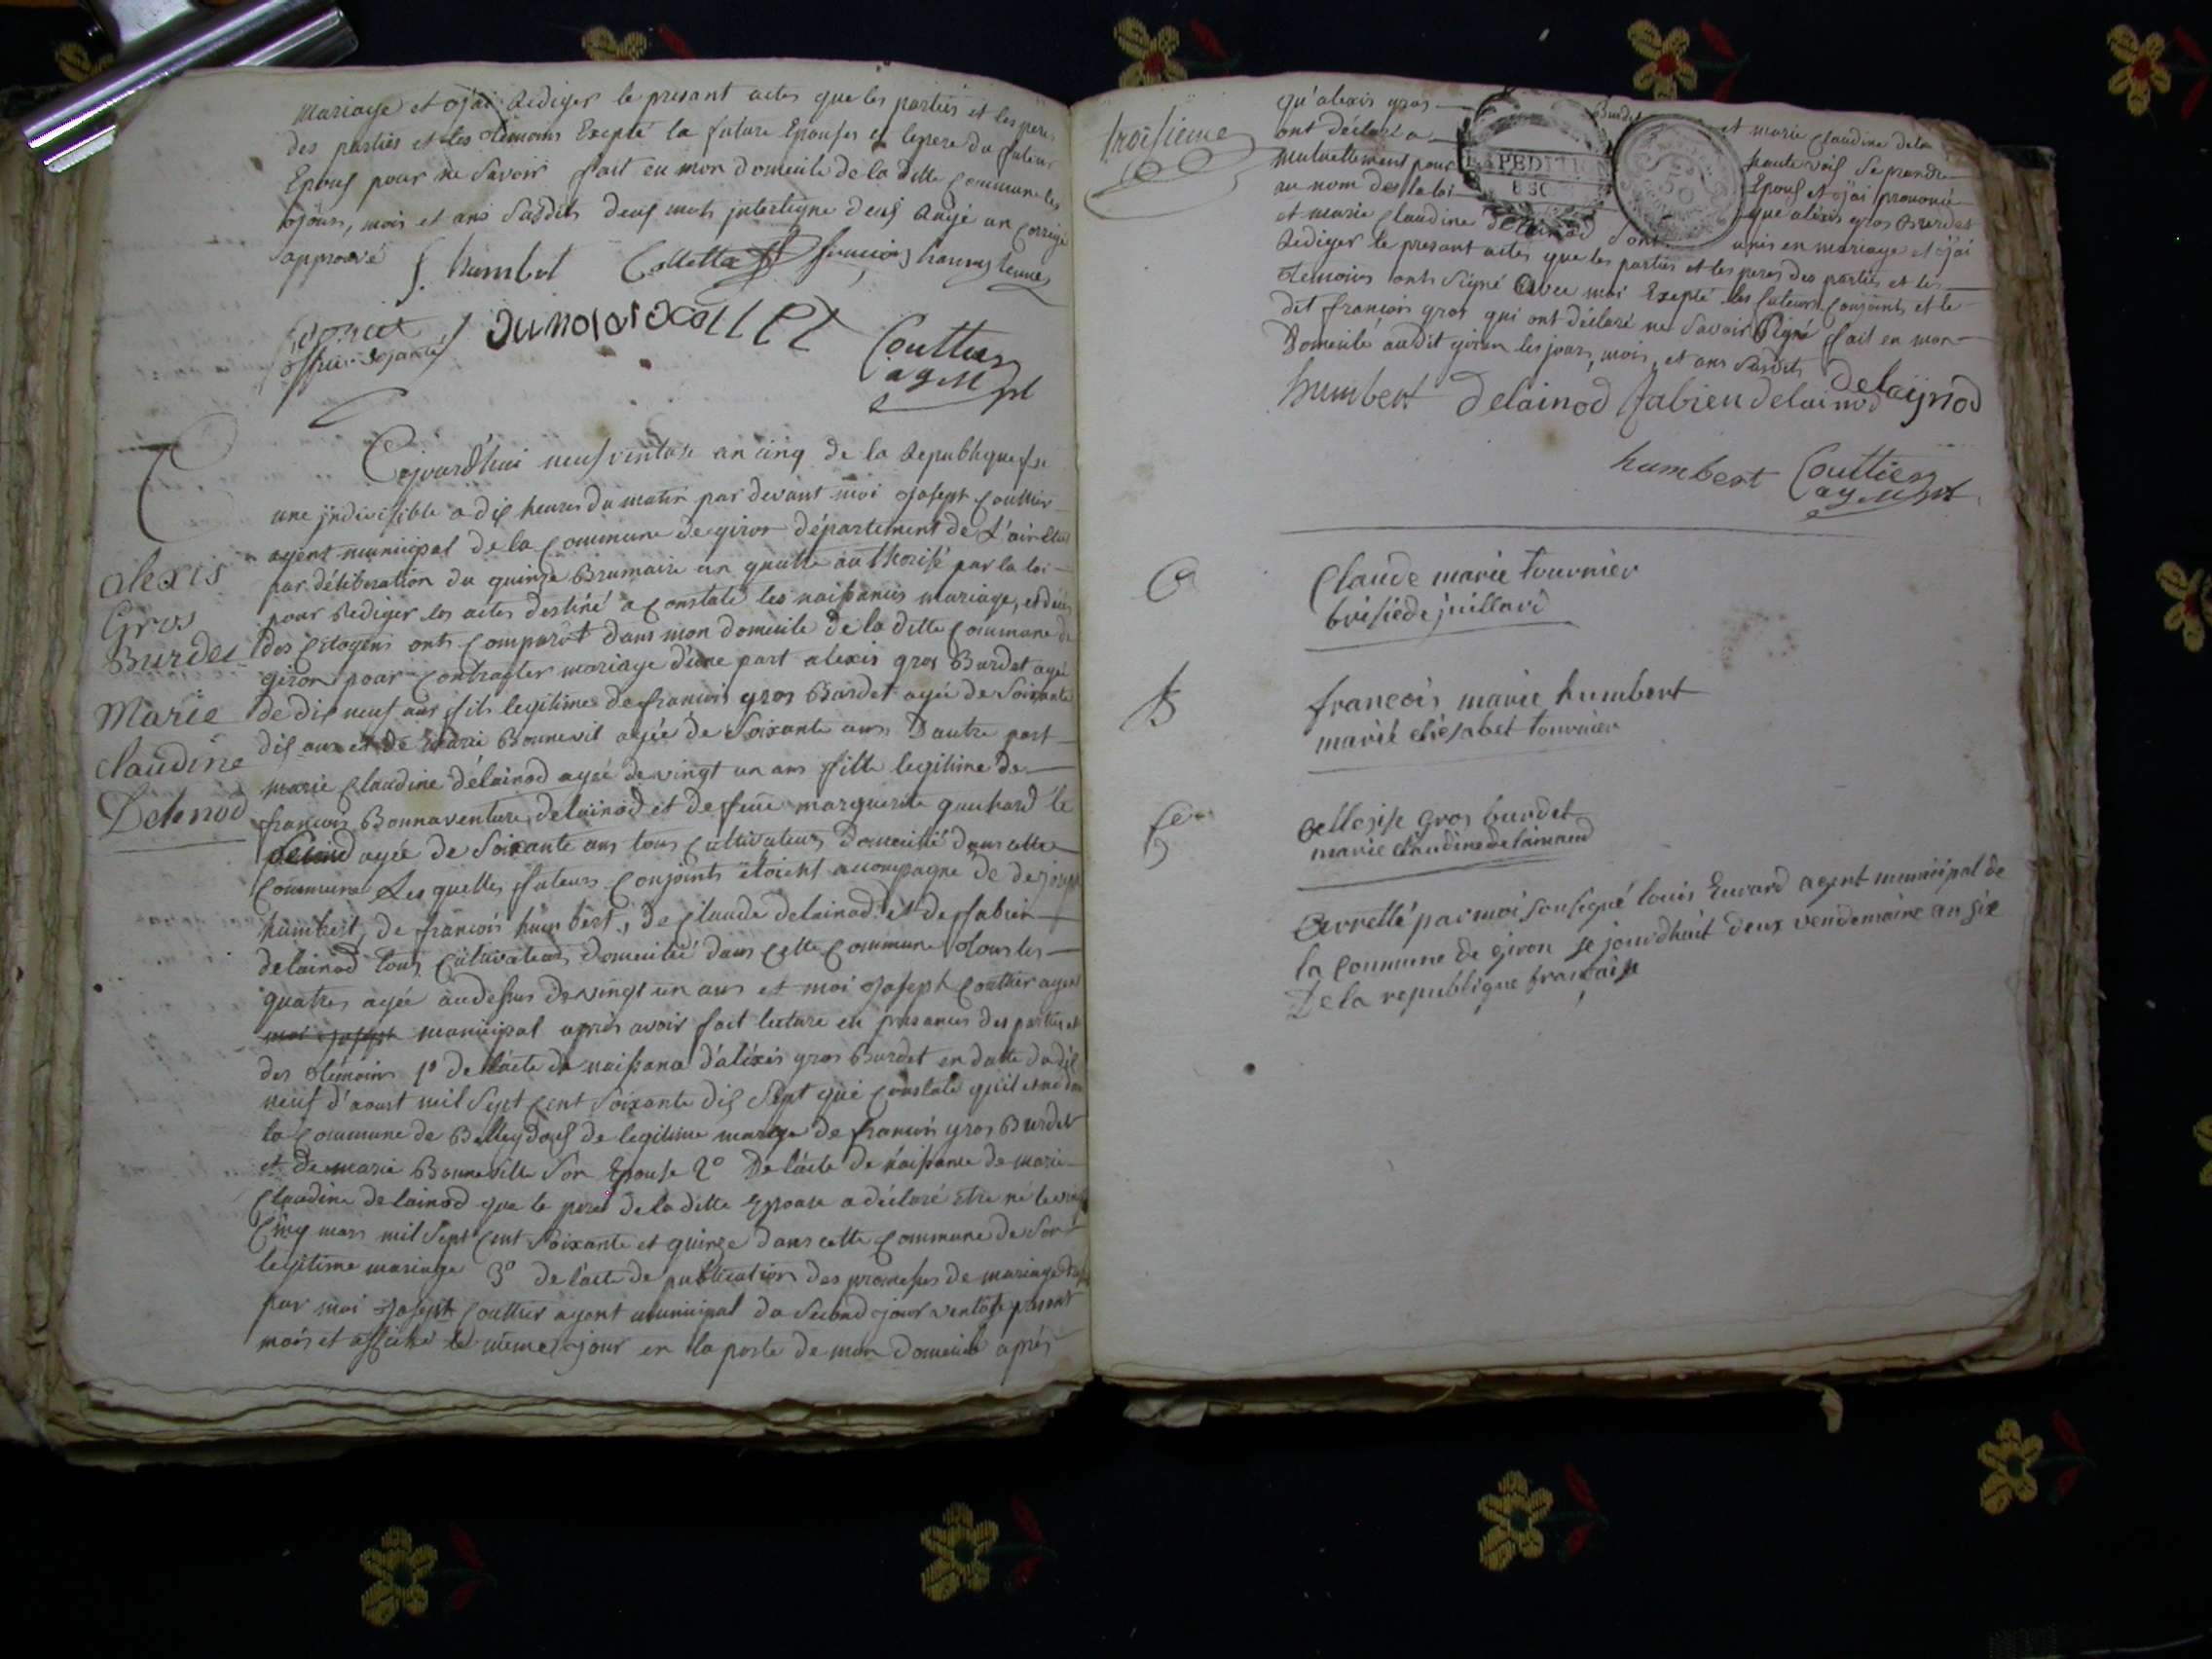 mariage et j'ai rediger le presant actes que les parties et les peres
des parties et les temoins Exepté la future Epouses et le pere du futeur
Epoux pour ne savoir fait en mon domicile de la ditte Commune les
jours, mois et ans susdits deux mots interligne deux rayé un corrigé
approuvé f. humbert Colletta françois
dumolard collet
Couttier
ag M pl
Cejourd'hui neuf ventose an cinq de la Republique fse
une jndivisible a dix heures du matin par devant moi joseph Couttier
agent municipal de la Commune de giron département de L'ain élu
par délibération du quinze Brumaire an quatre authorisé par la loi
pour rediger les actes destiné a Constaté les naissances mariage, et décès
des Citoyens ont Comparut dans mon domicile de la ditte Commune de
giron pour Contracter mariage d'une part alexis gros Burdet agé
de dix neuf ans fils legitime de francois gros Burdet agée de soixante
dix ans et de marie Bonnevil agée de soixante ans D'autre part
marie Claudine délainod agée de vingt un ans fille legitime de
francois Bonnaventure delainod et de feue marguerite gauhard le
agée de soixante ans tous Cultivateurs domicilié dans cette
Commune Les quelles futeurs Conjoints étoient accompagné de de joseph
humbert, de francois humbert, de Claude delainod et de fabien
delainod tous Cultivateurs domicilié dans Cette Commune tous les
quatres agée audessus de vingt un ans et moi joseph Couttier agent
moi joseph municipal après avoir fait lecture en presances des parties et
des temoins 1º de l'acte de naissance d'aléxis gros Burdet en datte du dix
neuf d'aoust mil sept Cent soixante dix sept qui Constate qu'il est né dans
la Commune de Belleydoux de legitime mariage de francois gros Burdet
et de marie Bonneville son Epouse 2º De l'acte de naissance de marie
Claudine delainod que le pere de la ditte Epouse a déclaré etre né le vingt
Cinq mars mil sept Cent soixante et quinze dans cette Commune de son
legitime mariage 3º de l'acte de publication des promesses de mariage
par moi joseph Couttier agent municipal du second jour ventose présent
mois et affiché le meme jour en la porte de mon domicile après
alexis
Gros
Burdet
Marie
Claudine
Delenod
troisieme
qu'alexis gros Burdet et marie Claudine dela
ont déclaré a haute voix se prandre
mutuellement pour Epoux et j'ai prononcé
au nom des la loi que aléxis gros Burdet
et marie Claudine delainod sont unis en mariage et j'ai
Rediger le presant actes que les parties et les peres des parties et les
temoins onts signé avec moi Exepté les futeurs Conjoints et le
dit francois gros qui ont déclaré ne savoir signé fait en mon
Domicile audit giron les jours, mois, et ans susdits
humbert delainod fabien delainod delaynod
humbert Couttier
ag M pl
Claude marie tournier
juillard
francois marie humbert
marie elisabet tournier
gros burdet
marie claudine delainaud
arretté par moi sousigné louis Emard agent municipal de
la Commune de giron se jourdhuit deux vendemaire an six
De la republique francaise